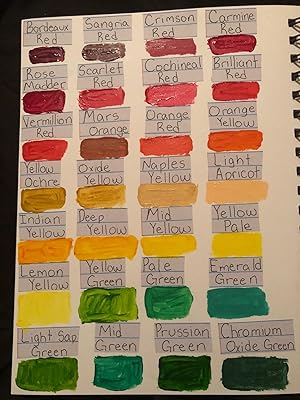 Bordeaux Red
Sangria Red
Crimson Red
Carmine Red
Rose Madder
Scarlet Red
Cochineal Red
Brilliant Red
Vermillion Red
Mars Orange
Orange Red
Orange Yellow
Yellow Ochre
Oxide Yellow
Naples Yellow
Light Apricot
Indian Yellow
Deep Yellow
Mid Yellow
Yellow Pale
Lemon Yellow
Yellow Green
Pale Green
Emerald Green
Light Sap Green
Mid Green
Prussian Green
Chromium Oxide Green